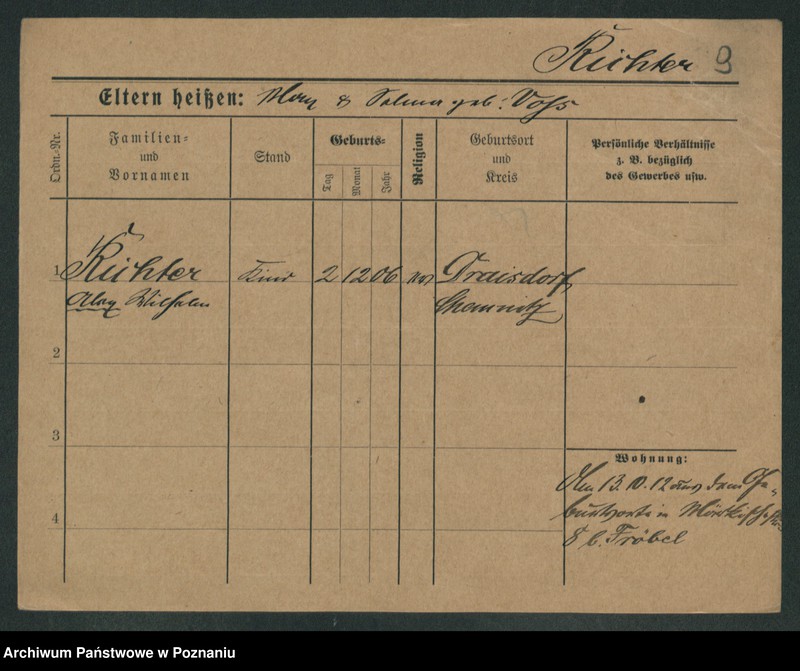 Richter 9
Eltern heißen: Max & Selma geb. Voß
Ordn.-Nr.
Familien-
und
Vornamen
Stand
Geburts-
Tag
Monat
Jahr
Religion
Geburtsort
und
Kreis
Persönliche Verhältnisse
z. B. bezüglich
des Gewerbes usw.
1 Richter Kind 2 12 06 Draisdorf
Max Wilhelm Chemnitz
2
3
Wohnung:
Am 13.10.12 aus dem Ge-
burtsorte in
4
8 b. Fröbel
Archiwum Państwowe w Poznaniu